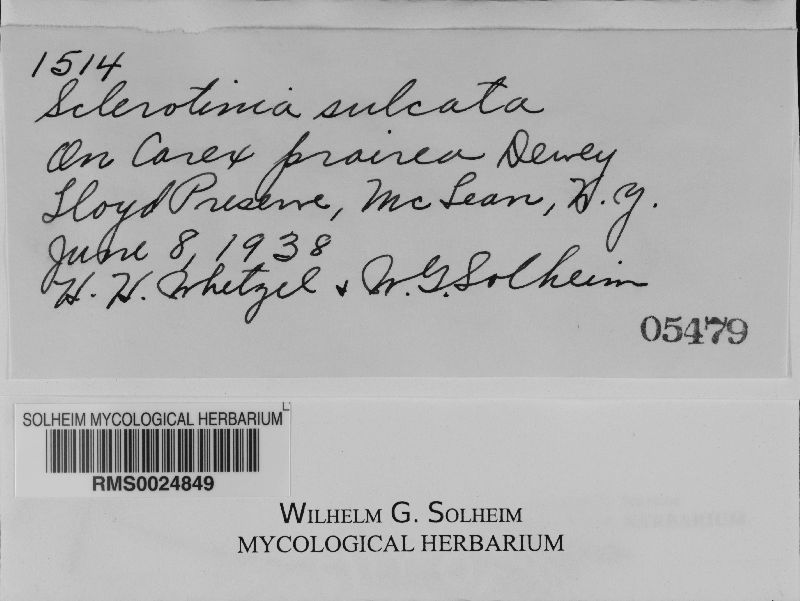 1514
Sclerotinia sulcata
On Carex prairea Dewey
Lloyd Preserve, McLean, N.Y.
June 8, 1938
H. H. Whetzel & W.G. Solheim
05479
SOLHEIM MYCOLOGICAL HERBARIUM
RMS0024849
WILHELM G. SOLHEIM
MYCOLOGICAL HERBARIUM